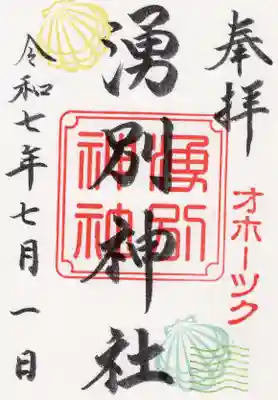 奉拝
オホーツク
湧別神社
令和七年七月一日